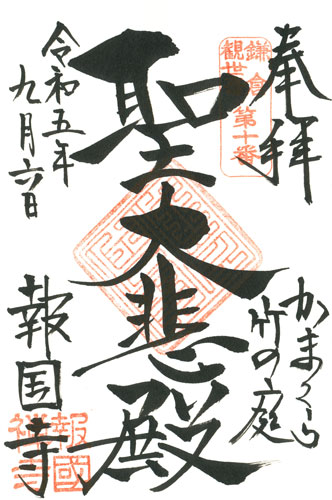 奉拝
鎌倉
観世音
第十番
かまくら
竹の庭
聖大悲殿
令和五年
九月六日
報国寺
報國
禅寺